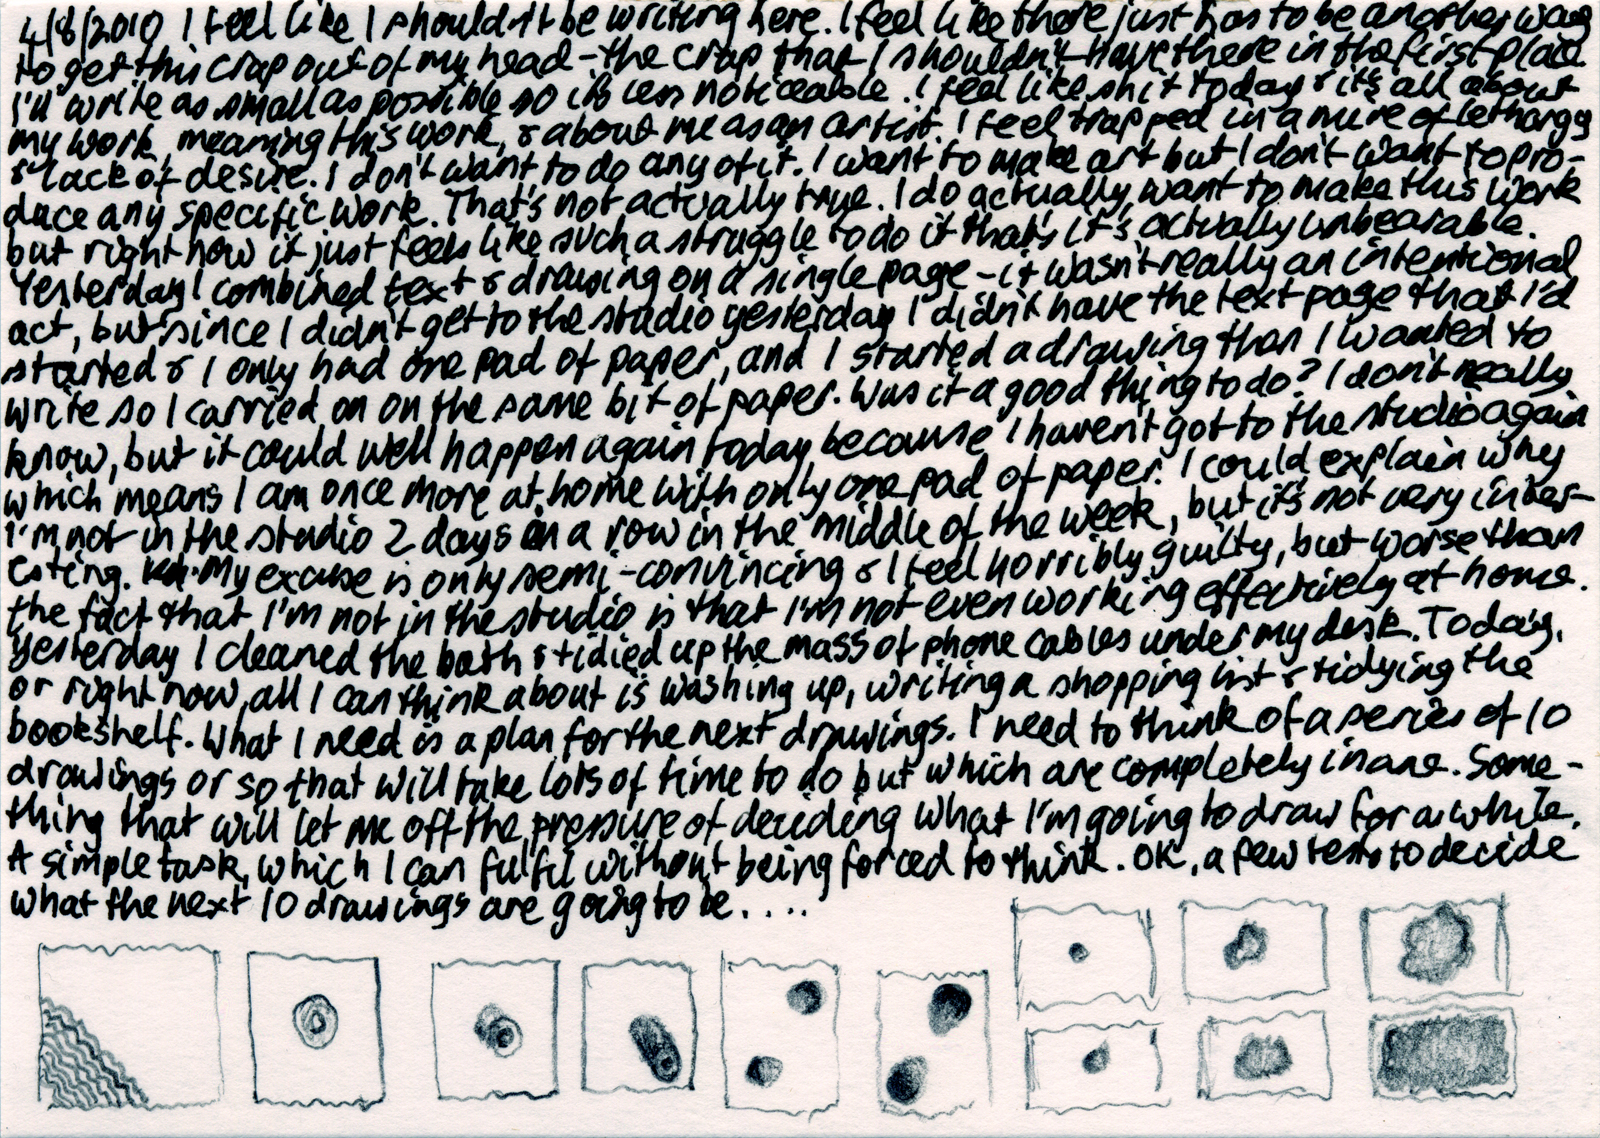 4/8/2010 I feel like I shouldn't be writing here. I feel like there just has to be another way
to get this crap out of my head - the crap that I shouldn't have there in the first place.
I'll write as small as possible so it's less noticeable. I feel like shit today & it's all about
my work, meaning this work, & about me as an artist. I feel trapped in a mire of lethargy
& lack of desire. I don't want to do any of it. I want to make art but I don't want to pro-
duce any specific work. That's not actually true. I do actually want to make this work
but right now it just feels like such a struggle to do it that's it's actually unbearable.
Yesterday I combined text & drawing on a single page - it wasn't really an intentional
act, but since I didn't get to the studio yesterday I didn't have the text page that I'd
started & I only had one pad of paper, and I started a drawing then I wanted to
write so I carried on on the same bit of paper. Was it a good thing to do? I don't really
know, but it could well happen again today because I haven't got to the studio again
which means I am once more at home with only one pad of paper. I could explain why
I'm not in the studio 2 days in a row in the middle of the week, but it's not very inter-
esting. My excuse is only semi-convincing & I feel horribly guilty, but worse than
the fact that I'm not in the studio is that I'm not even working effectively at home.
Yesterday I cleaned the bath & tidied up the mass of phone cables under my desk. Today,
or right now, all I can think about is washing up, writing a shopping list & tidying the
bookshelf. What I need is a plan for the next drawings. I need to think of a series of 10
drawings or so that will take lots of time to do but which are completely inane. Some-
thing that will let me off the pressure of deciding what I'm going to draw for a while.
A simple task, which I can fulfil without being forced to think. OK, a few tests to decide
what the next 10 drawings are going to be....